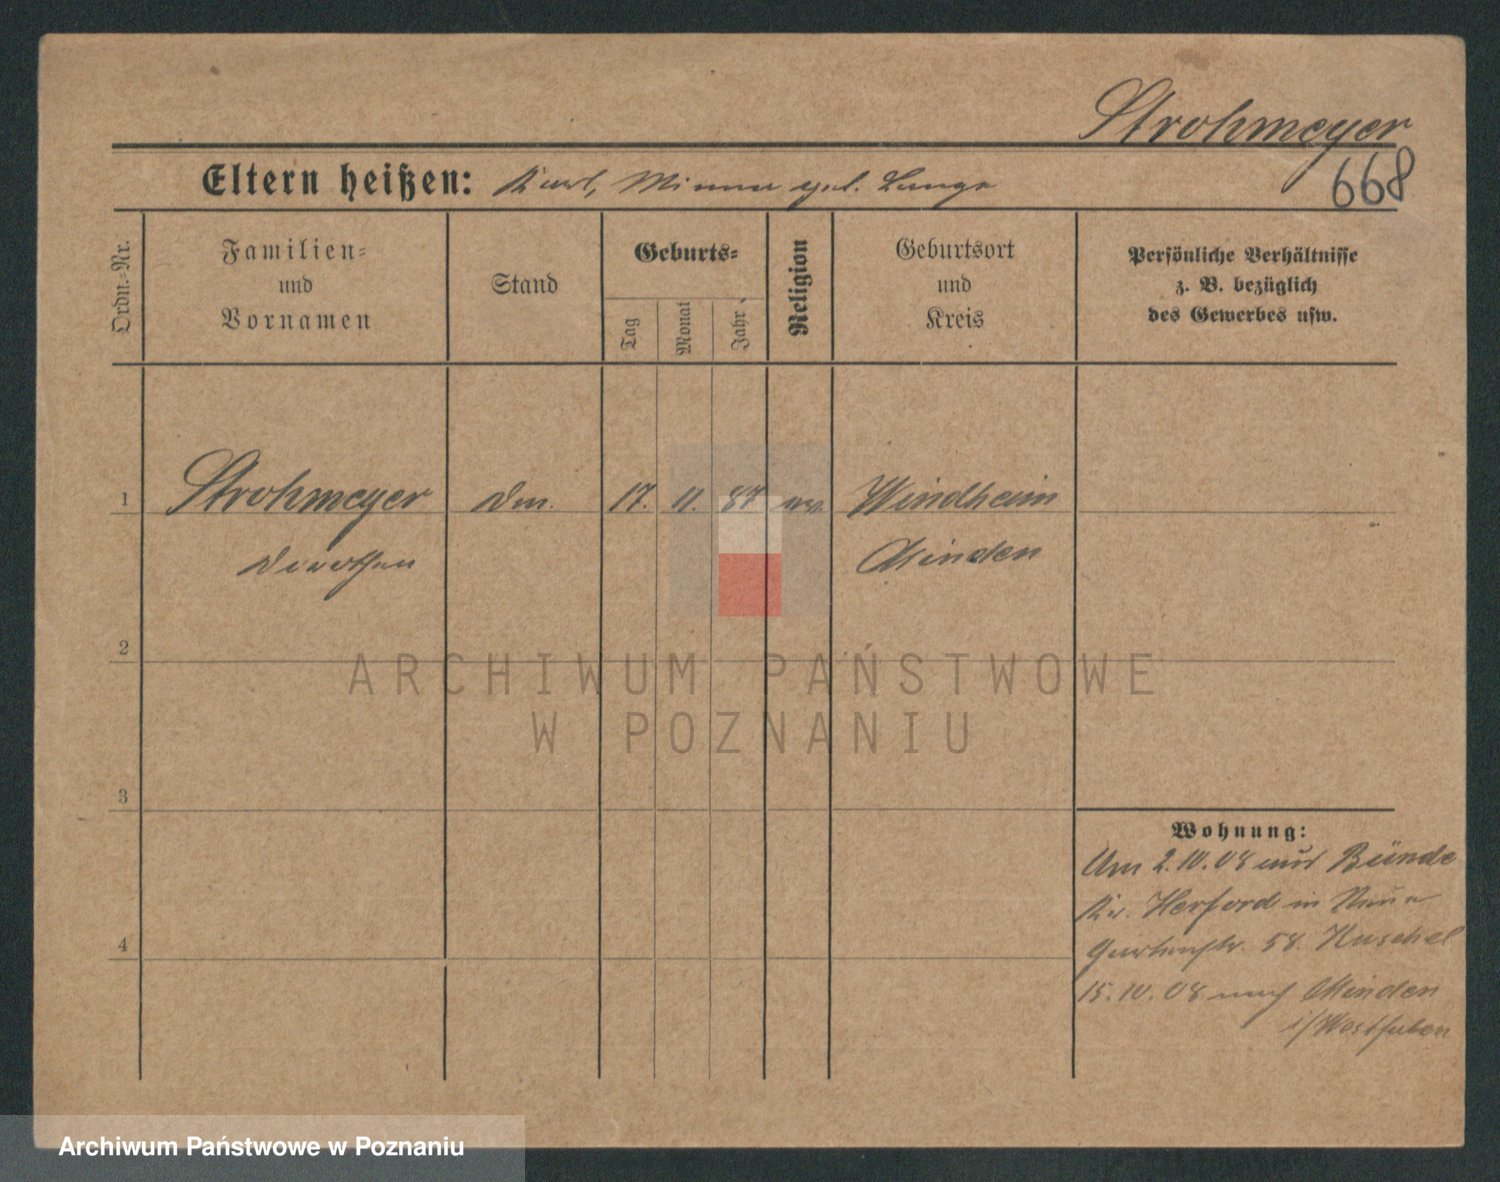 Strohmeyer
668
Eltern heißen: Karl, Minna geb. Lange
Ordn.-Nr.
Familien-
und
Vornamen
Stand
Geburts-
Tag
Monat
Jahr
Religion
Geburtsort
und
Kreis
Persönliche Verhältnisse
z. B. bezüglich
des Gewerbes usw.
1 Strohmeyer 17. 11. 87 ev. Windheim
Dorothea Minden
2
ARCHIWUM PAŃSTWOWE
W POZNANIU
3
Wohnung:
Am 2.10.08 aus Bünde
Kr. Herford in
Gartenstr. 58. Kuschel
4
15.10.08 nach Minden
i/Westfalen
Archiwum Państwowe w Poznaniu